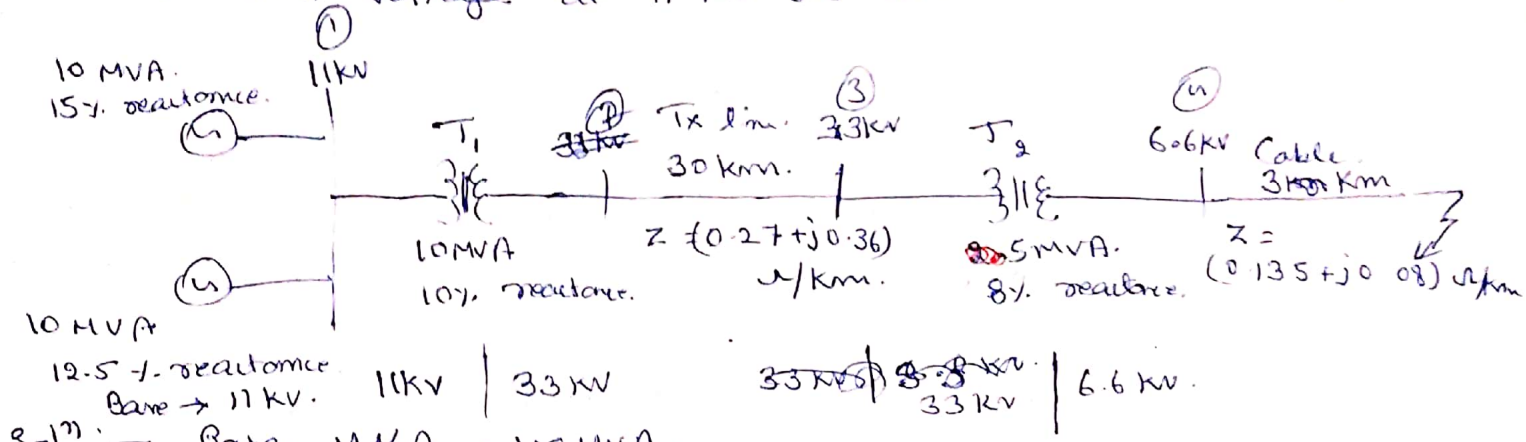 voltages
①
10 MVA. 11KV
15%. reactance.
G
T1
② Tx line. ③ 33KV
30 km.
T2
④ 6.6KV Cable
3 Km
10 MVA
10%. reactance.
Z = (0.27 + j0.36)
Ω/km.
5 MVA.
8%. reactance.
Z =
(0.135 + j0.08) Ω/km
G
10 MVA
12.5 %. reactance
Base → 11 KV.
11KV | 33 KV
33 KV | 6.6 KV.
Base MVA